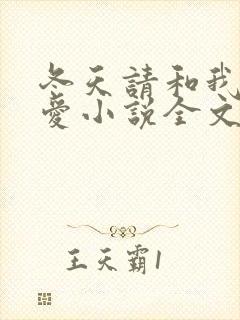 冬天請和我
愛小說全文
王天霸1